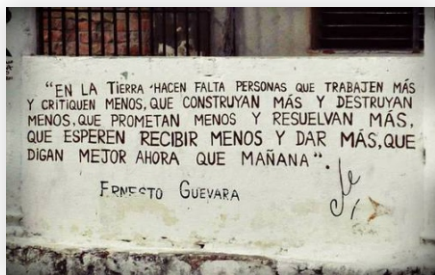 "EN LA TIERRA HACEN FALTA PERSONAS QUE TRABAJEN MÁS
Y CRITIQUEN MENOS, QUE CONSTRUYAN MÁS Y DESTRUYAN
MENOS, QUE PROMETAN MENOS Y RESUELVAN MÁS,
QUE ESPEREN RECIBIR MENOS Y DAR MÁS, QUE
DIGAN MEJOR AHORA QUE MAÑANA".
ERNESTO GUEVARA
Che